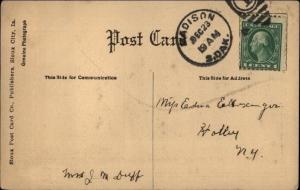 Sioux Post Card Co., Publishers, Sioux City, Ia.
Genuine Photograph
Post Card
MADISON
DEC 23
9 AM
S. DAK.
This Side for Communication
This Side for Address
Miss Edna
Holley
N.Y.
Mrs J. M. Duff